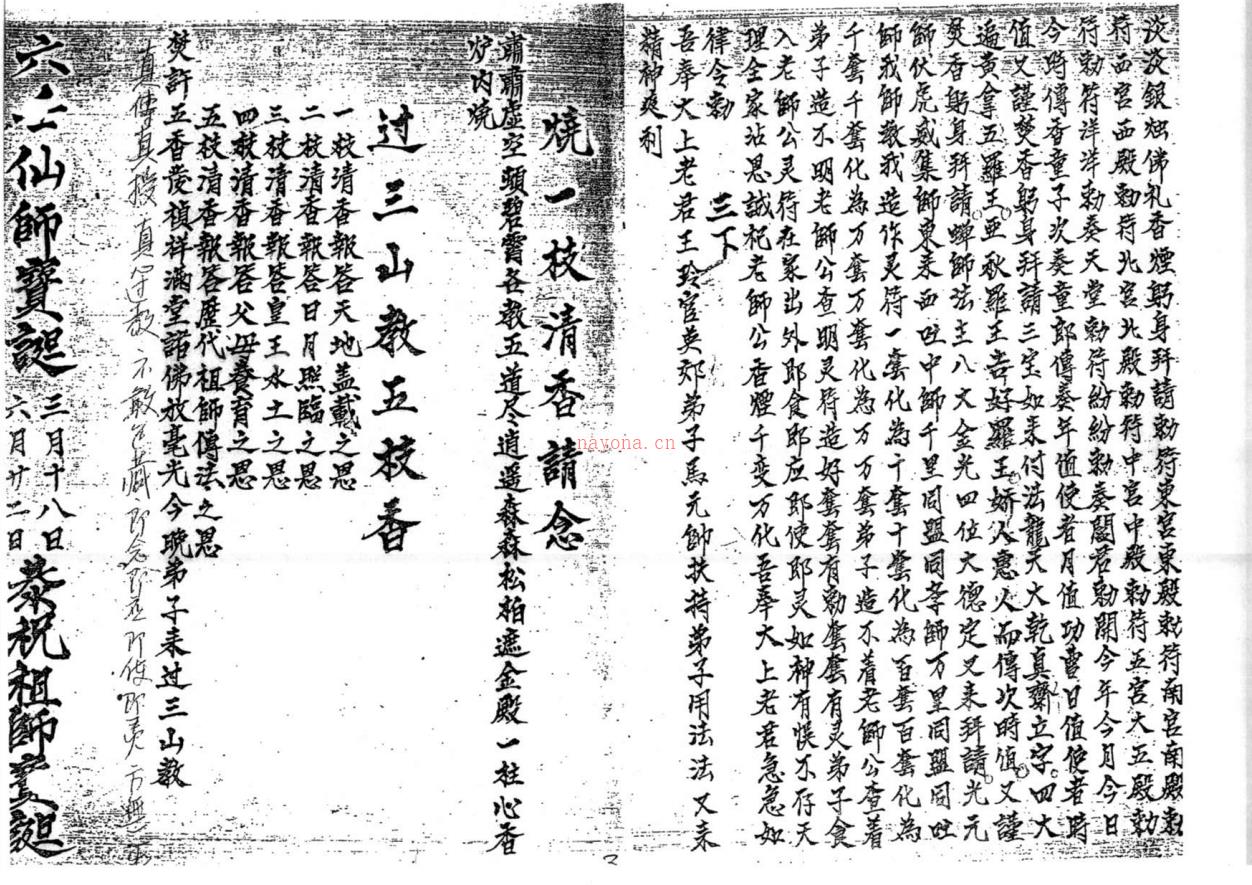 淡淡銀烛佛礼香煙躬身拜請勅符東宮東殿勅符南宮南殿勅
符西宮西殿勅符北宮北殿勅符中宮中殿勅符五宮大五殿勅
符勅符洋洋勅奏天堂勅符紛紛勅奏閻君勅開今年今月今日
今時傳香童子次奏童郎傳奏年值使者月值功曹日值使者時
值又謹焚香躬身拜請三宝如来付法龍天大乾真齋立字四大
遍黄拿五羅王亜秋羅王吉好羅王嬌人惠人而傳次時值又謹
焚香躬身拜請蟬師法主八丈金光四位大德定又来拜請光元
師伏虎威集師東来西吐中師千里同盟同孝師万里同盟同吐
師我師教我造作灵符一套化為十套十套化為百套百套化為
千套千套化為万套万套化為万万套弟子造不着老師公查着
弟子造不明老師公查明灵符造好套套有勅套套有灵弟子食
入老師公灵符在家出外即食即应即使即灵如神有悞不存天
理全家沾恩誠祀老師公香煙千变万化吾奉大上老君急急如
律令勅
三下
吾奉大上老君王玲官英郊弟子馬元帥扶持弟子用法法又来
精神爽利
燒一枝清香請念
肅肅虛空頭碧霄各教五道尽逍遥森森松柏遮金殿一柱心香
炉内燒
过三山教五枝香
一枝清香報答天地盖載之恩
二枝清香報答日月照臨之恩
三枝清香報答皇王水土之恩
四枝清香報答父母養育之恩
五枝清香報答歷代祖師傳法之恩
焚許五香發禎祥滿堂諸佛放毫光今晚弟子来过三山教
真傳真授真
六壬仙師寶誕
三月十八日
六月廿二日
恭祝祖師寶誕
nayona.cn